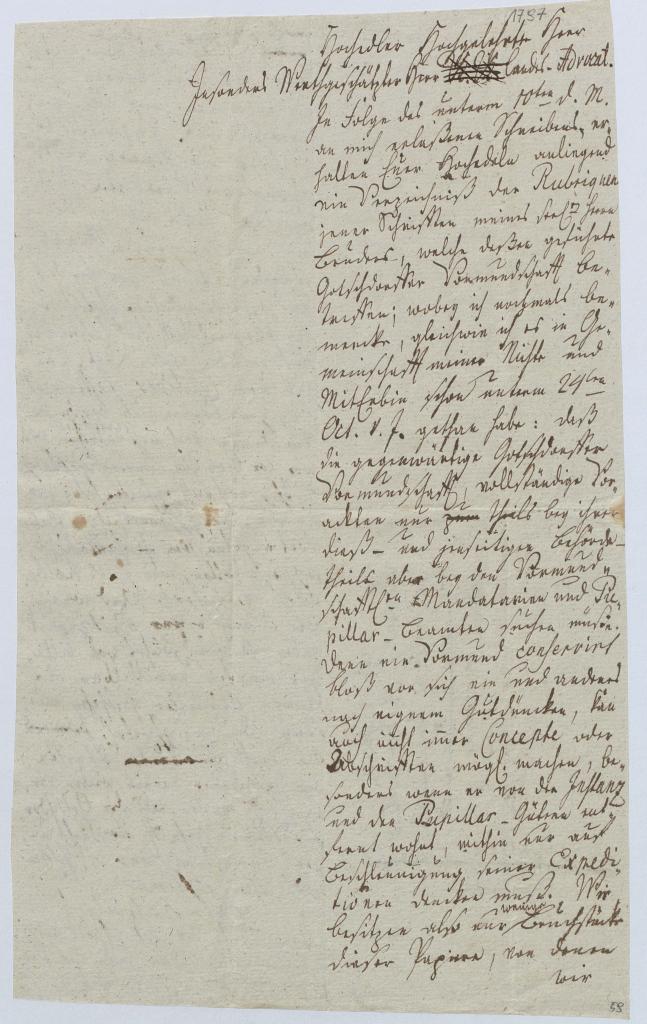 1797
Hochedler Hochgelehrter Herr
Insonders Werthgeschätzter Herr Landes-Advocat.
In Folge des unterm 10ten d. M.
an mich erlaßenen Schreibens, er-
halten Euer Hochedeln anliegend
ein Verzeichniß der Rubriquen
jener Schrifften meines seel. Herrn
Bruders, welche deßen geführte
Gotschdorffer Vormundschafft be-
treffen; wobey ich nochmals be-
mercke, gleichwie ich es in Ge-
meinschafft meiner Nichte und
MitErbin schon unterm 24sten
Oct. v. J. gethan habe: daß
die gegenwärtige Gotschdorffer
Vormundschafft, vollständige Vor-
ackten nur zum theils bey ihrer
dieß- und jenseitigen Behörde
theils aber bey den Vormund-
schafftl. Mandatarien und Pu-
pillar-Beamten suchen müße.
Denn ein Vormund conservirt
bloß vor sich ein und anderes
nach eignem Gutdüncken, kan
auch nicht immer Concepte oder
Abschrifften mögl. machen, be-
sonders wenn er von der Instanz
und den Pupillar-Gütern ent-
fernt wohnt, mithin nur auf
Beschleunigung seiner Expedi-
tionen dencken muß. Wir
besitzen also nur wenige Bruchstücke
dieser Papiere, von denen
wir
59